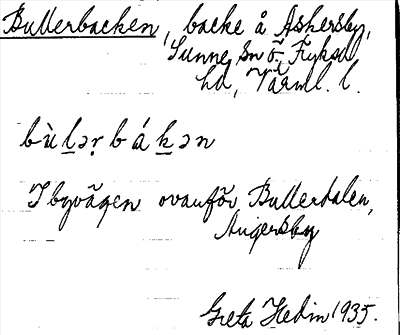 Bullerbacken, backe å Askersby,
Sunne sn ö. Fryksd.
hd, Värml. l.
bùḻəṛbáḵən
I byvägen ovanför Bullerdalen,
Angersby
Greta Hedin 1935.